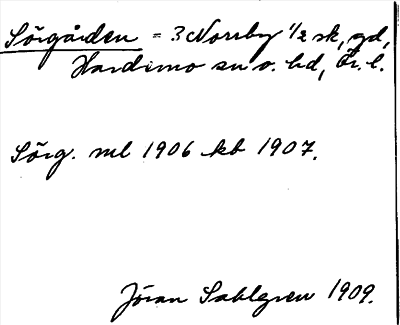 Sörgården = 3 Norrby 1/2 sk, gd,
Hardemo sn o. hd, Ör. l.
Sörg. ml 1906 kb 1907.
Jöran Sahlgren 1909.